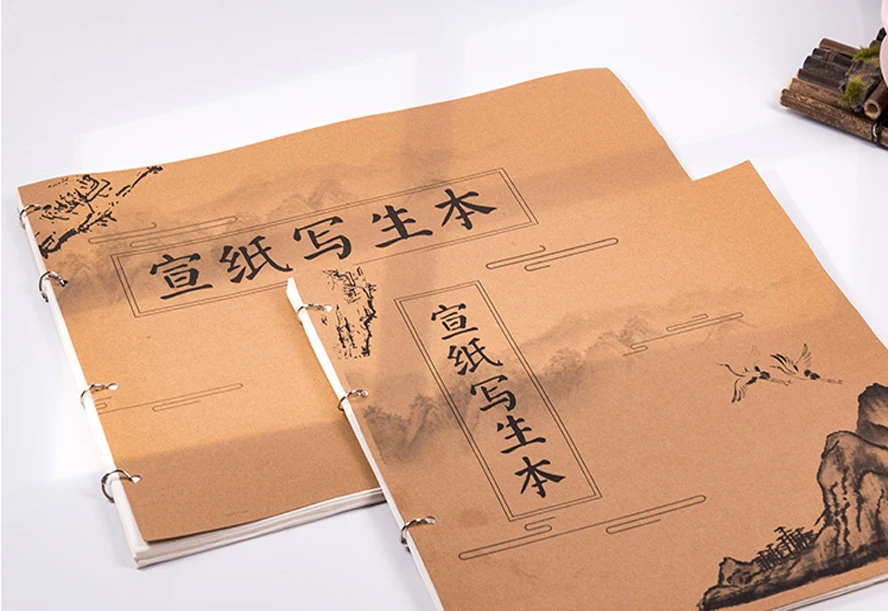 宣纸写生本
宣纸写生本